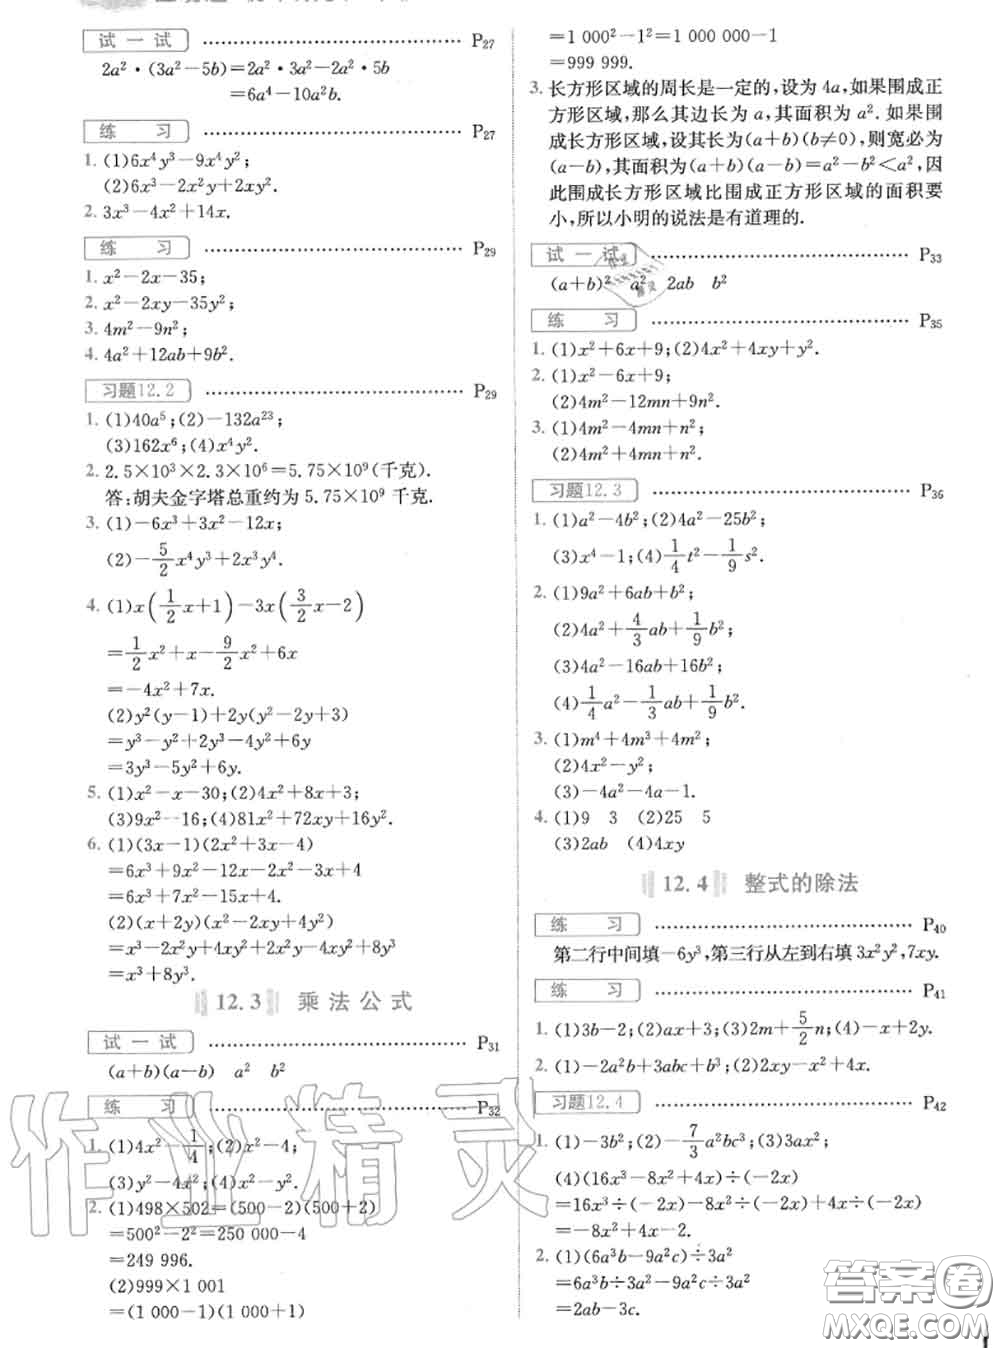 试一试 P27
2a²·(3a²-5b)=2a²·3a²-2a²·5b
=6a⁴-10a²b.
练 习 P27
1. (1)6x⁴y³-9x⁴y²;
(2)6x³-2x²y+2xy².
2. 3x³-4x²+14x.
练 习 P29
1. x²-2x-35;
2. x²-2xy-35y²;
3. 4m²-9n²;
4. 4a²+12ab+9b².
习题12.2 P29
1. (1)40a⁵;(2)-132a²³;
(3)162x⁶;(4)x⁴y².
2. 2.5×10³×2.3×10⁶=5.75×10⁹(千克).
答:胡夫金字塔总重约为 5.75×10⁹ 千克.
3. (1)-6x³+3x²-12x;
(2)-5/2x⁴y³+2x³y⁴.
4. (1)x(1/2x+1)-3x(3/2x-2)
=1/2x²+x-9/2x²+6x
=-4x²+7x.
(2)y²(y-1)+2y(y²-2y+3)
=y³-y²+2y³-4y²+6y
=3y³-5y²+6y.
5. (1)x²-x-30;(2)4x²+8x+3;
(3)9x²-16;(4)81x²+72xy+16y².
6. (1)(3x-1)(2x²+3x-4)
=6x³+9x²-12x-2x²-3x+4
=6x³+7x²-15x+4.
(2)(x+2y)(x²-2xy+4y²)
=x³-2x²y+4xy²+2x²y-4xy²+8y³
=x³+8y³.
12.3 乘法公式
试一试 P31
(a+b)(a-b) a² b²
练 习 P32
1. (1)4x²-1/4;(2)x²-4;
(3)y²-4x²;(4)x²-y².
2. (1)498×502=(500-2)(500+2)
=500²-2²=250 000-4
=249 996.
(2)999×1 001
=(1 000-1)(1 000+1)
=1 000²-1²=1 000 000-1
=999 999.
3. 长方形区域的周长是一定的,设为 4a,如果围成正
方形区域,那么其边长为 a,其面积为 a². 如果围
成长方形区域,设其长为(a+b)(b≠0),则宽必为
(a-b),其面积为(a+b)(a-b)=a²-b²<a²,因
此围成长方形区域比围成正方形区域的面积要
小,所以小明的说法是有道理的.
试一试 P33
(a+b)² a² 2ab b²
练 习 P35
1. (1)x²+6x+9;(2)4x²+4xy+y².
2. (1)x²-6x+9;
(2)4m²-12mn+9n².
3. (1)4m²-4mn+n²;
(2)4m²-4mn+n².
习题12.3 P36
1. (1)a²-4b²;(2)4a²-25b²;
(3)x⁴-1;(4)1/4t²-1/9s².
2. (1)9a²+6ab+b²;
(2)4a²+4/3ab+1/9b²;
(3)4a²-16ab+16b²;
(4)1/4a²-1/3ab+1/9b².
3. (1)m⁴+4m³+4m²;
(2)4x²-y²;
(3)-4a²-4a-1.
4. (1)9 3 (2)25 5
(3)2ab (4)4xy
12.4 整式的除法
练 习 P40
第二行中间填-6y³,第三行从左到右填 3x²y²,7xy.
练 习 P41
1. (1)3b-2;(2)ax+3;(3)2m+5/2n;(4)-x+2y.
2. (1)-2a²b+3abc+b³;(2)2xy-x²+4x.
习题12.4 P42
1. (1)-3b²;(2)-7/3a²bc³;(3)3ax²;
(4)(16x³-8x²+4x)÷(-2x)
=16x³÷(-2x)-8x²÷(-2x)+4x÷(-2x)
=-8x²+4x-2.
2. (1)(6a³b-9a²c)÷3a²
=6a³b÷3a²-9a²c÷3a²
=2ab-3c.
作业精灵
答案圈
MXQE.COM
1